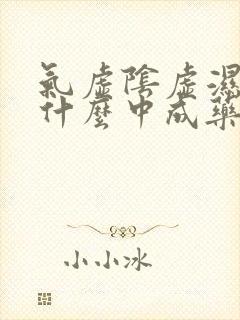 氣虛陰虛濕
什麼中成藥
小小冰